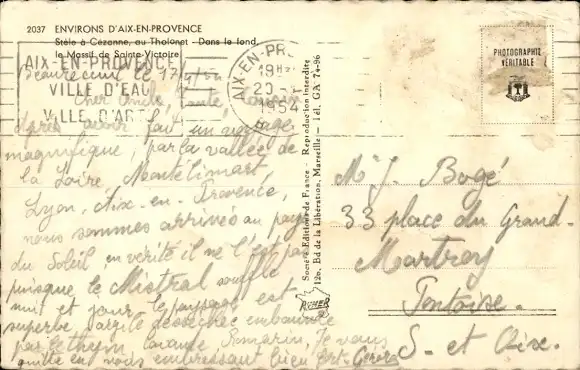 2037 ENVIRONS D'AIX-EN-PROVENCE
Stèle à Cézanne, au Tholonet - Dans le fond,
le Massif de Sainte-Victoire
AIX-EN-PROVENCE
VILLE D'EAU
VILLE D'ART
AIX-EN-PRO
20 -
1954
PHOTOGRAPHIE
VÉRITABLE
Beaurecueil le 17
Cher Oncle, Tante
Après avoir fait un voyage
magnifique, par la vallée de
la Loire, Montélimart,
Lyon, Aix-en-Provence,
nous sommes arrivés au pays
du Soleil, en vérité il ne l'est pas
puisque le Mistral souffle
nuit et jour, le paysage est
superbe, argile desséchée embaumée
par le thym, lavande, Romarin, je vous
quitte en vous embrassant bien fort. Gérard
Société Édition de France - Reproduction Interdite
120, Bd de la Libération, Marseille - Tél. GA 74-96
M J. Bogé
33 place du Grand-
Martroy
Pontoise.
S. et Oise.